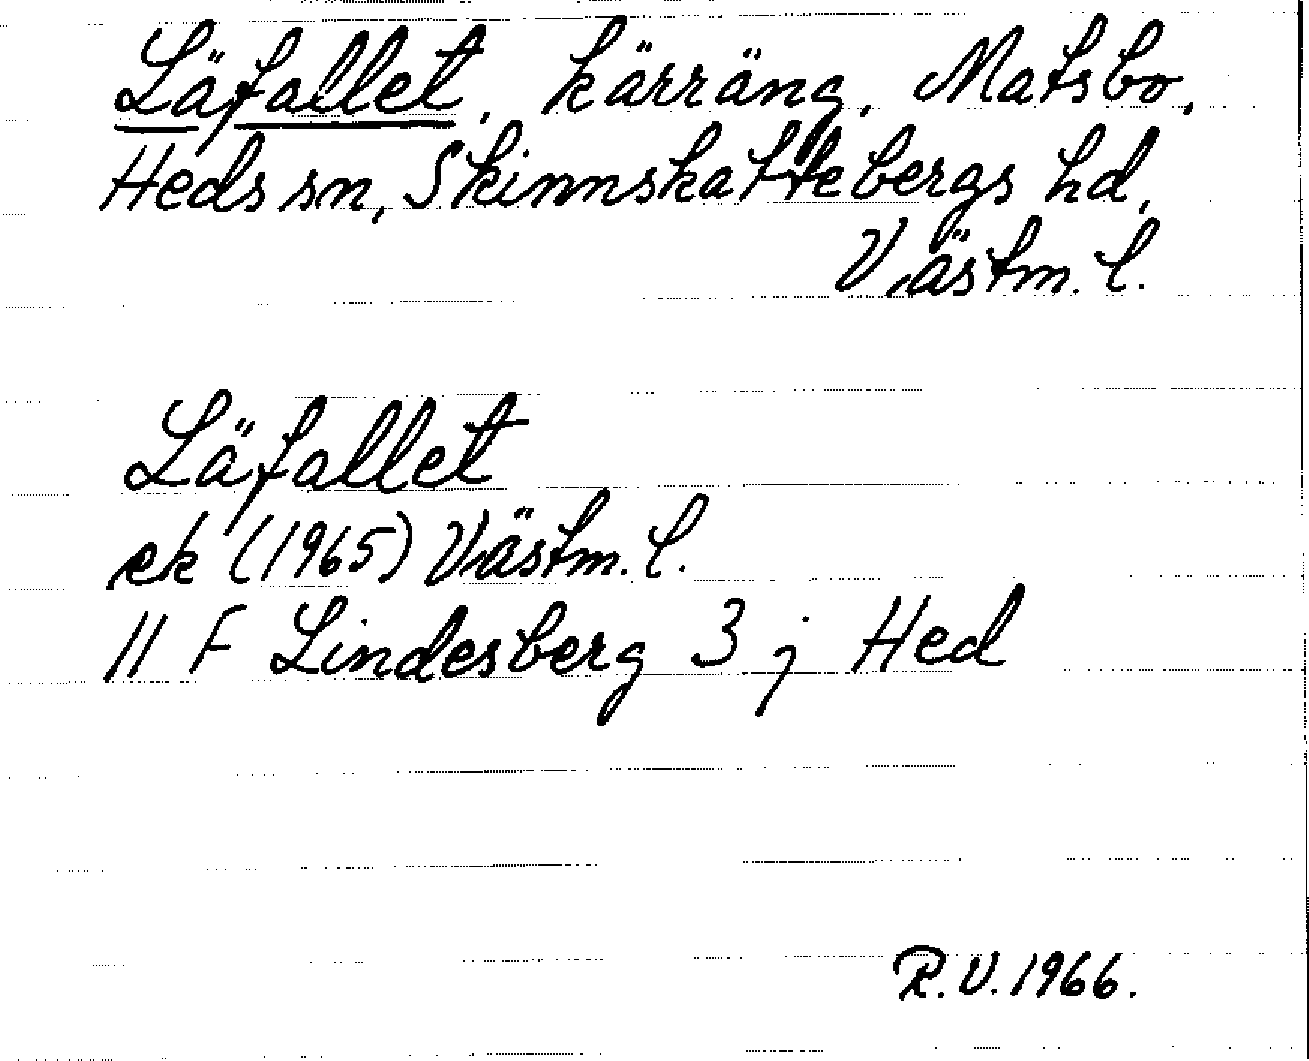 Läfallet, kärräng, Matsbo,
Heds sn, Skinnskattebergs hd,
Västm. l.
Läfallet
ek (1965) Västm. l.
11 F Lindesberg 3 j Hed
R.V. 1966.